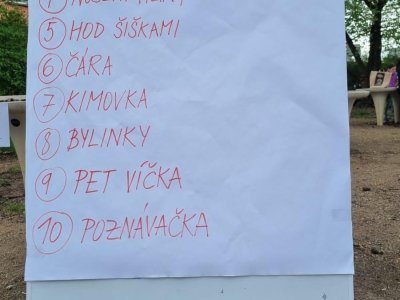 5 HOD ŠIŠKAMI
6 ČÁRA
7 KIMOVKA
8 BYLINKY
9 PET VÍČKA
10 POZNÁVAČKA